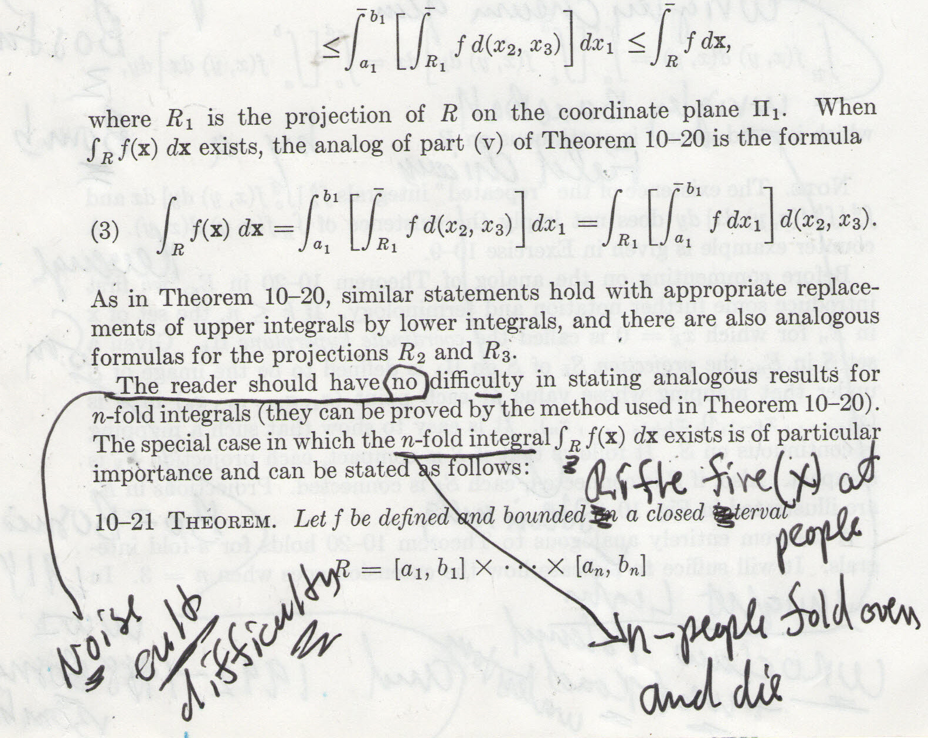 ≤ ∫̄_{a₁}^{b₁} [ ∫̄_{R₁} f d(x₂, x₃) ] dx₁ ≤ ∫̄_R f dx,
where R₁ is the projection of R on the coordinate plane Π₁. When
∫_R f(x) dx exists, the analog of part (v) of Theorem 10–20 is the formula
(3) ∫_R f(x) dx = ∫̄_{a₁}^{b₁} [ ∫̄_{R₁} f d(x₂, x₃) ] dx₁ = ∫_{R₁} [ ∫̄_{a₁}^{b₁} f dx₁ ] d(x₂, x₃).
As in Theorem 10–20, similar statements hold with appropriate replace-
ments of upper integrals by lower integrals, and there are also analogous
formulas for the projections R₂ and R₃.
The reader should have no difficulty in stating analogous results for
n-fold integrals (they can be proved by the method used in Theorem 10–20).
The special case in which the n-fold integral ∫_R f(x) dx exists is of particular
importance and can be stated as follows:
Rifle fire (x) at
people
10–21 THEOREM. Let f be defined and bounded on a closed interval
R = [a₁, b₁] × · · · × [aₙ, bₙ]
Noise
difficulty
n-people fold over
and die